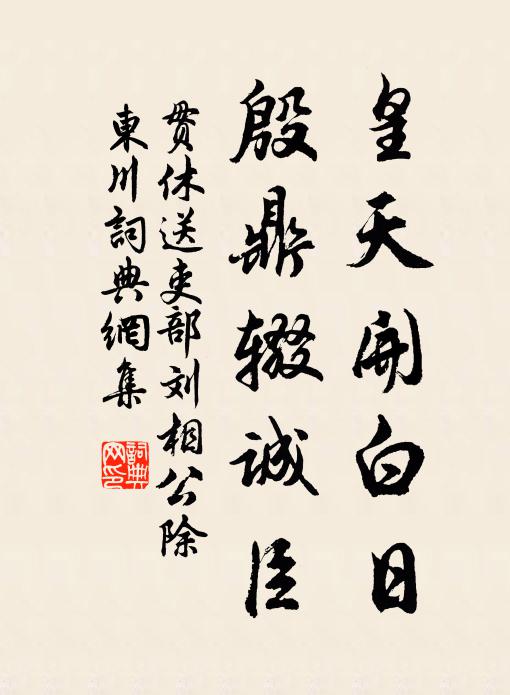 皇天開白日
殷鼎辍誠臣
贯休送吏部刘相公除
東川詞典網集
詞典
网印